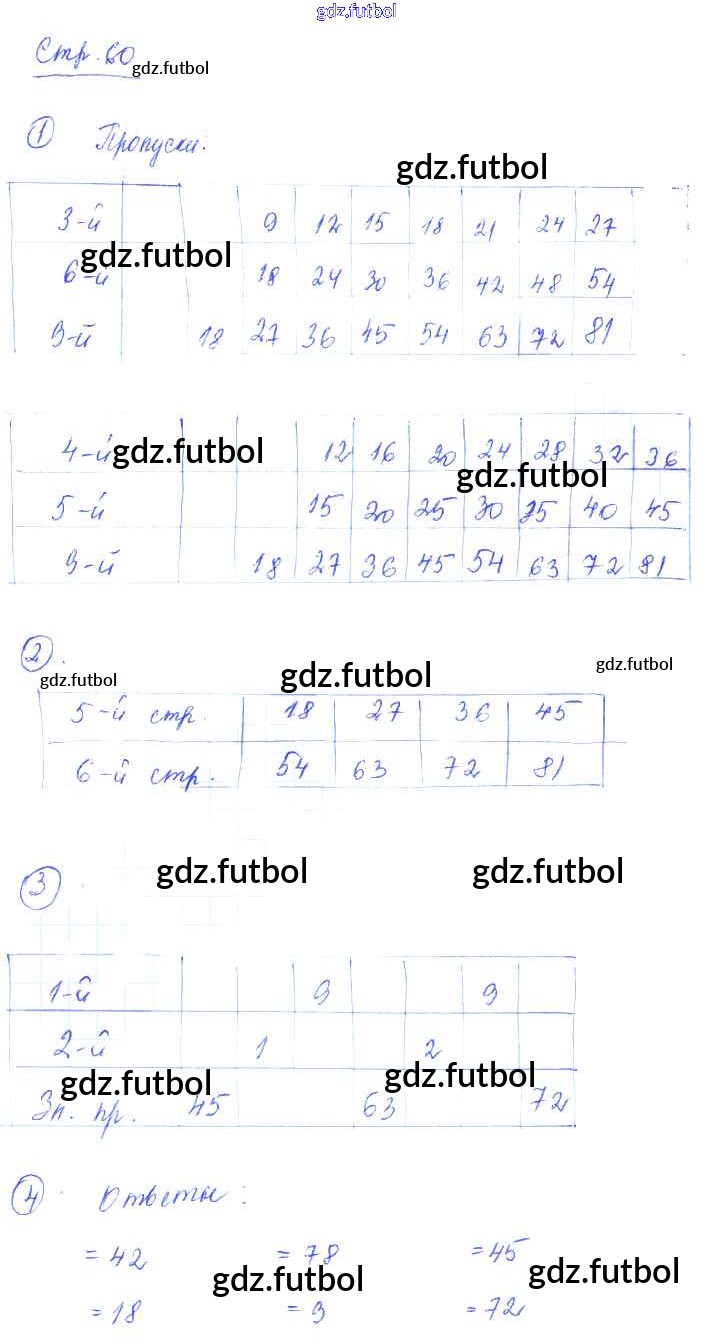 gdz.futbol
Стр. 60
gdz.futbol
① Пропуски:
gdz.futbol
3-й 9 12 15 18 21 24 27
gdz.futbol
6-й 18 24 30 36 42 48 54
9-й 18 27 36 45 54 63 72 81
4-й 12 16 20 24 28 32 36
gdz.futbol
gdz.futbol
5-й 15 20 25 30 35 40 45
9-й 18 27 36 45 54 63 72 81
②.
gdz.futbol gdz.futbol gdz.futbol
5-й стр. 18 27 36 45
6-й стр. 54 63 72 81
③
gdz.futbol gdz.futbol
1-й 9 9
2-й 1 2
gdz.futbol gdz.futbol
Зн. пр. 45 63 72
④. Ответы:
= 42 = 78 = 45
gdz.futbol gdz.futbol
= 18 = 9 = 72